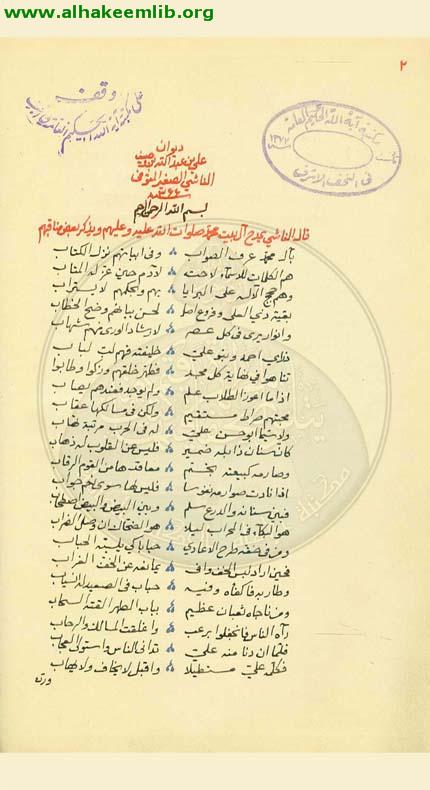 www.alhakeemlib.org
٢
وقف
على مكتبة آية الله الحكيم العامة
مكتبة آية الله الحكيم العامة
١٣٧٧
في النجف الاشرف
ديوان
علي بن عبد الله بن وصيف
الناشي الصغير المتوفى
٣٦٦
بسم الله الرحمن الرحيم
قال الناشي يمدح آل بيت محمد صلوات الله عليه وعليهم ويذكر بعض مناقبهم
بآل محمد عرف الصواب وفي ابياتهم نزل الكتاب
هم الكلمات للاسماء لاحت لآدم حين عز له المتاب
وهم حجج الاله على البرايا بهم وبحكمهم لا يستراب
بقية ذي العلى وفروع اصل لحسن بيانهم وضح الخطاب
وانوار يرى في كل عصر لارشاد الورى منهم شهاب
ذراري احمد وبنو علي خليفته فهم لب لباب
تناهوا في نهاية كل مجد فطهر خلقهم وزكوا وطابوا
اذا ما اعوز الطلاب علم ولم يوجد فعندهم يصاب
محبتهم صراط مستقيم ولكن في مسالكها عقاب
ولا سيما ابو حسن علي له في الحرب مرتبة تهاب
كأن سنان ذابله ضمير فليس عن القلوب له ذهاب
وصارمه كبيعته بخم معاقدها من القوم الرقاب
اذا نادت صوارمه نفوسا فليس لها سوى نعم جواب
فبين سنانه والدرع سلم وبين البيض والبيض اصطحاب
هو البكاء في المحراب ليلا هو الضحاك ان وصل الضراب
ومن في خفه طرح الاعادي حبابا كي يلسبه الحباب
فحين اراد لبس الخف وافى يمانعه عن الخف الغراب
وطار به فاكفأه وفيه حباب في الصعيد له انسياب
ومن ناجاه ثعبان عظيم بباب الطهر القته السحاب
رآه الناس فانجفلوا برعب واغلقت المسالك والرحاب
فلما ان دنا منه علي تدانى الناس واستولى العجاب
فكلمه علي مستطيلا واقبل لا يخاف ولا يهاب